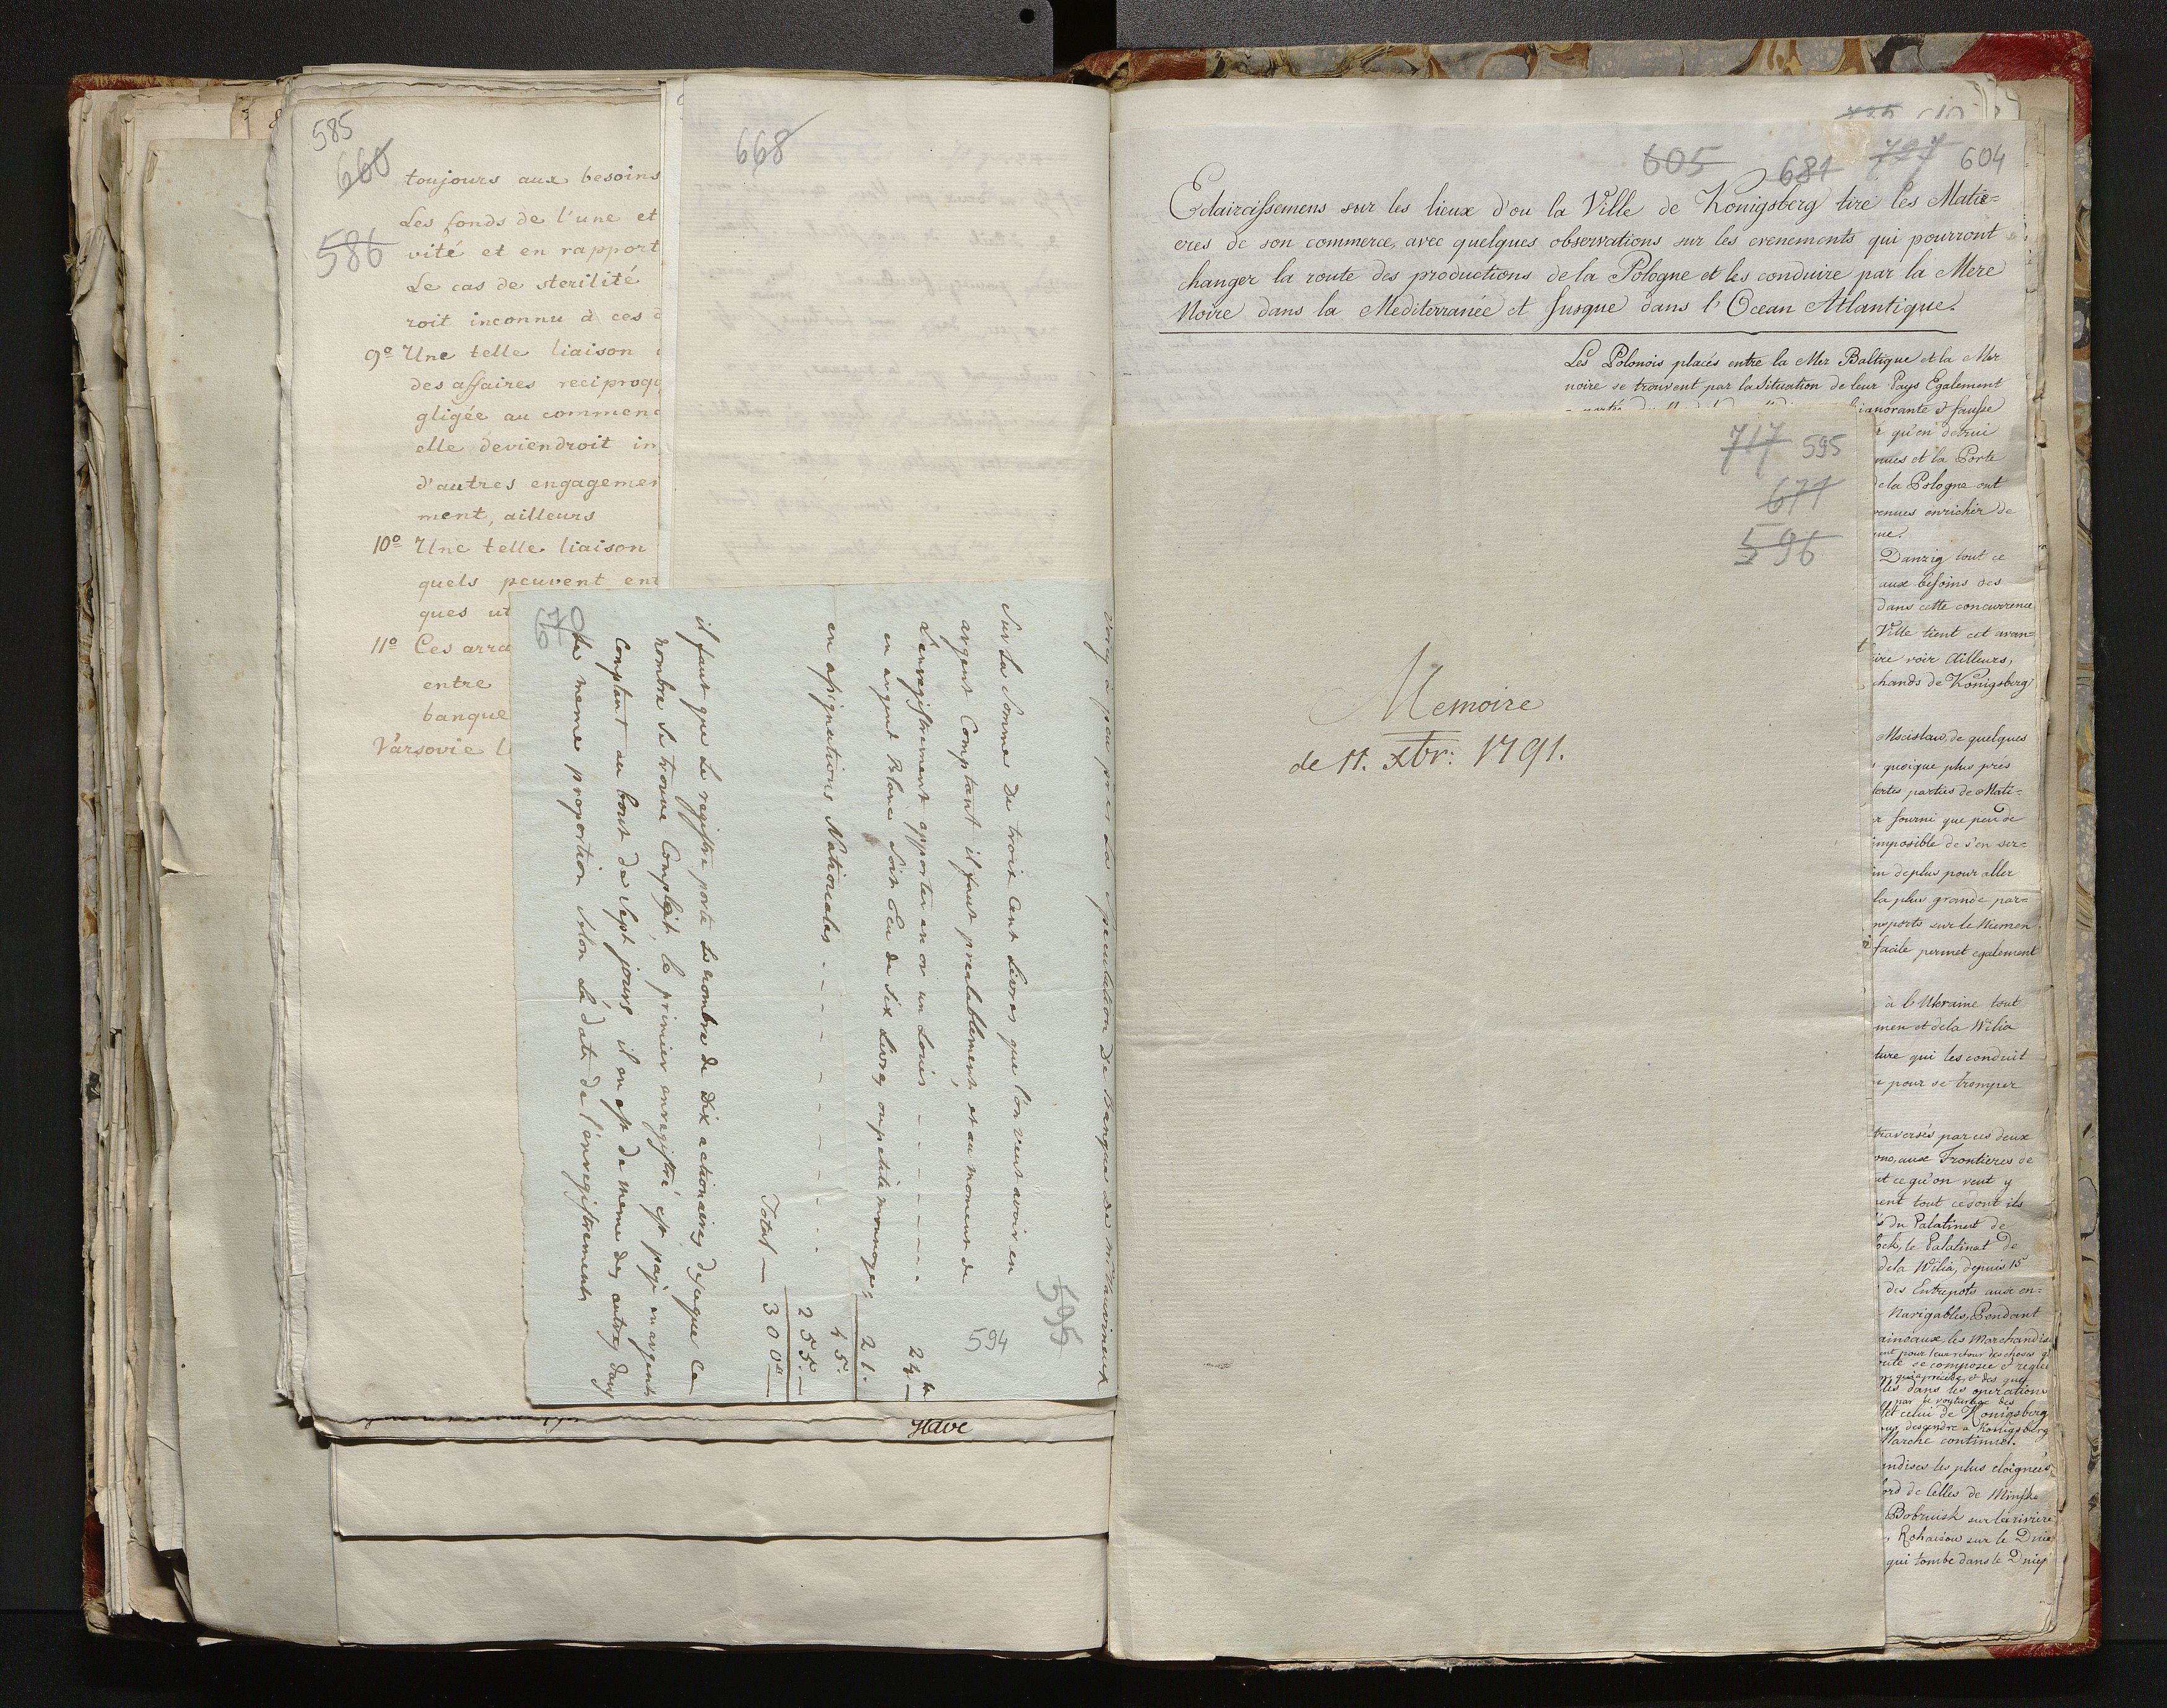 585
660
toujours aux besoins
Les fonds de l'une et
586
vité et en rapport
Le cas de sterilité
roit inconnu à ces
9º Une telle liaison
des affaires reciproq
gligée au commenc
elle deviendroit in
d'autres engagemen
ment, ailleurs
10º Une telle liaison
quels peuvent ent
ques ut
11º Ces arra
entre
banque
Varsovie l
668
Have
voicy à peu près la speculation de banque de mr.
595
594
Sur la Somme de trois Cent Livres que l'on veut avoir en
argent Comptant il faut prealablement, et au moment de
L'enregistrement apporter en or un Louis - - - - - - 24 —
en argent blanc Soit Ecu de Six Livres ou petite monnoye 21.
45.
en assignations Nationales - - - - - - - - 255.—
Total — 300 —
il faut que Le registre porte Le nombre de dix actionaires dès que Ce
nombre Se trouve Complet, le premier enregistré est payé en argent
Comptant au bout de Sept jours il en est de meme des autres dans
La meme proportion Selon La date de l'enregistrement
605 681 727 604
Eclaircissemens sur les lieux d'ou la Ville de Konigsberg tire les Matie=
eres de son commerce, avec quelques observations sur les evenements qui pourront
changer la route des productions de la Pologne et les conduire par la Mere
Noire dans la Mediterranée et Jusque dans l'Ocean Atlantique.
Les Polonois placés entre la Mer Baltique et la Mer
noire se trouvent par la Situation de leur Pays Egalement
ignorante & fausse
qu'en detrui
nues et la Porte
de la Pologne ont
venues enrichir de
ue.
Danzig tout ce
aux besoins des
dans cette concurrence
Ville tient cet avan=
ire voir Ailleurs,
chands de Konigsberg
Mscislaw, de quelques
quoique plus prés
fertes parties de Mati=
r fourni que peu de
imposible de s'en ser=
in de plus pour aller
la plus grande par=
nsports sur le Niemen
facile permet egalement
à l'Ukraine tout
men et de la Wilia
ture qui les conduit
e pour se tromper
traversés par ces deux
ono, aux Frontieres de
et ce qu'on veut y
ent tout ce dont ils
du Palatinat de
ock, le Palatinat de
de la Wilia, depuis 15
des Entrepots aux en=
Navigables, Pendant
aineaux, les Marchandis
ent pour leur retour des choses q
ute se composée & reglée
les dans les operations
par le voyturage des
et celui de Konigsberg
descendre a Konigsberg
Marche continuel.
ndises les plus eloignées
ord de Celles de Minsk
Bobruisk sur la riviere
Rohaczow sur le Dnie
qui tombe dans le Dniep
717 595
671
596
Memoire
de 11. Xbr: 1791.